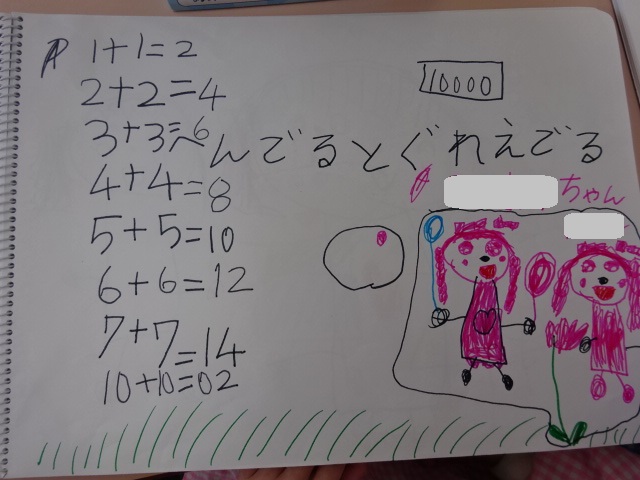 1+1=2
2+2=4
3+3=6
4+4=8
5+5=10
6+6=12
7+7=14
10+10=02
10000
へんでるとぐれえでる
ちゃん